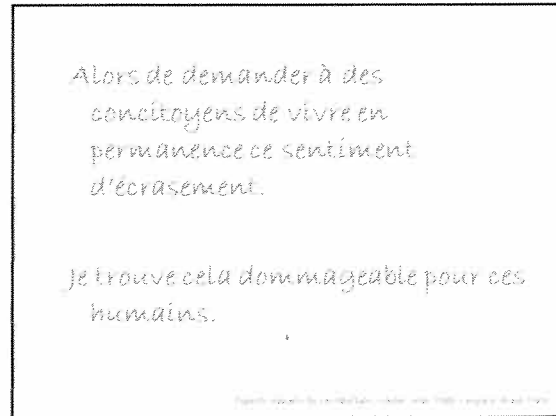 Alors de demander à des
concitoyens de vivre en
permanence ce sentiment
d'écrasement.
Je trouve cela dommageable pour ces
humains.